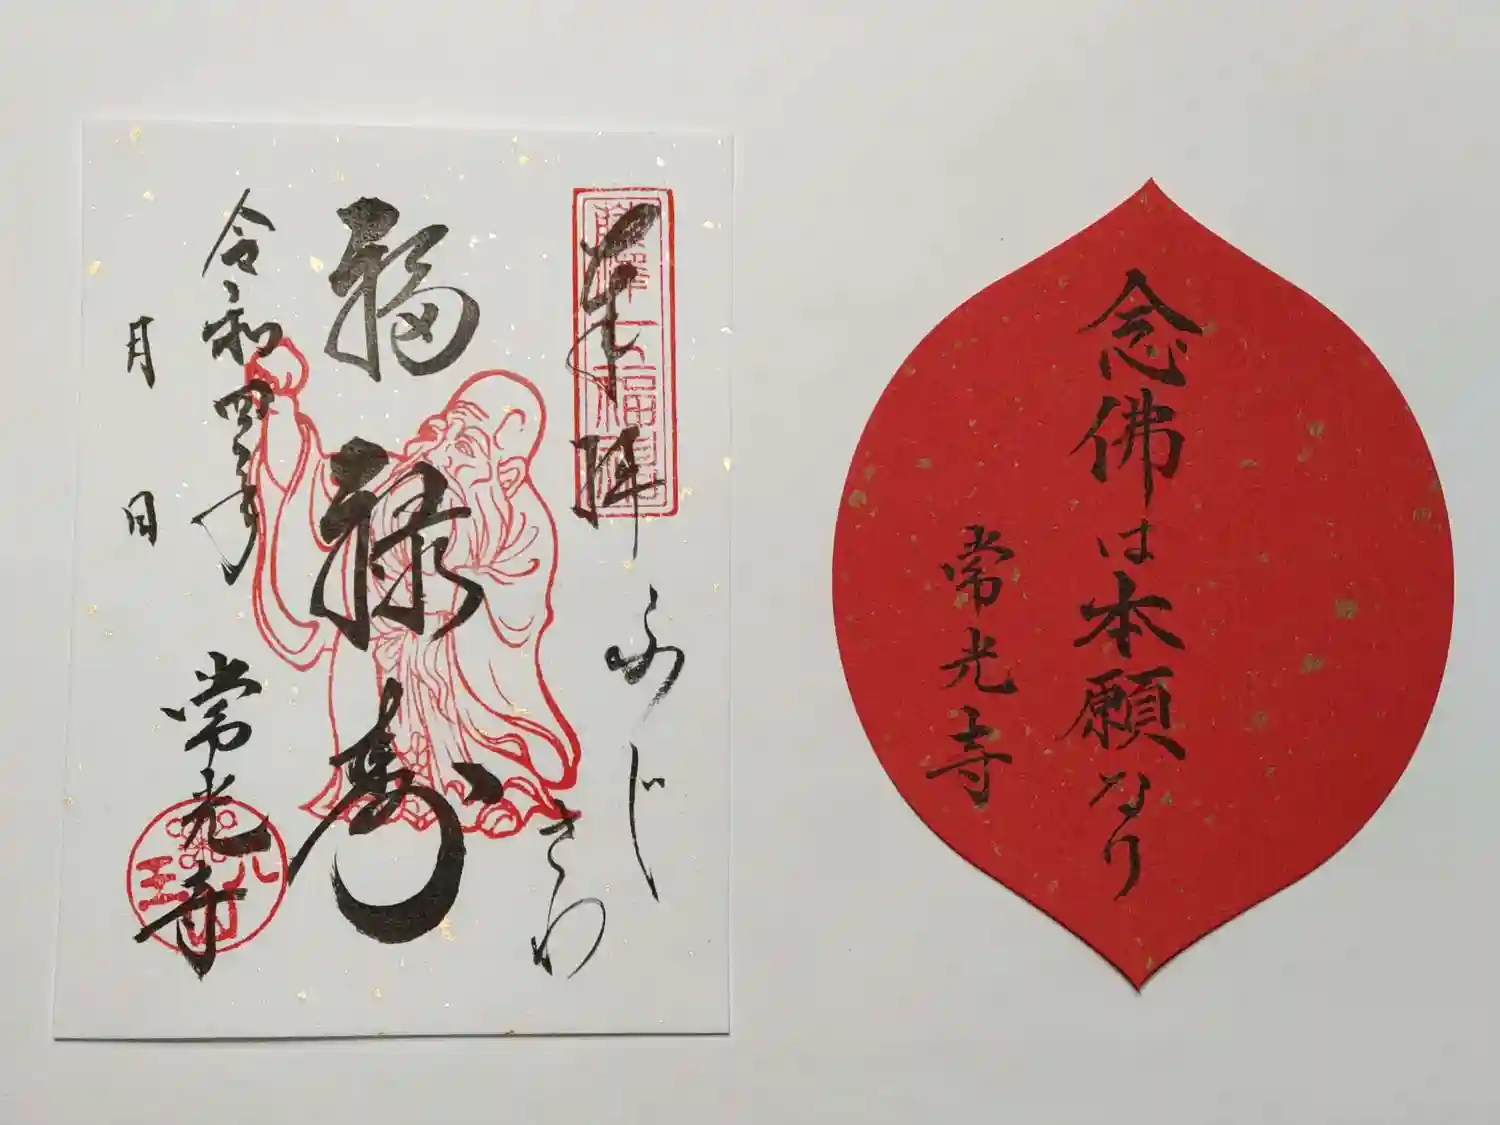 奉拝
藤澤七福神
ふじさわ
福禄寿
令和四年
月 日
常光寺
念佛は本願なり
常光寺